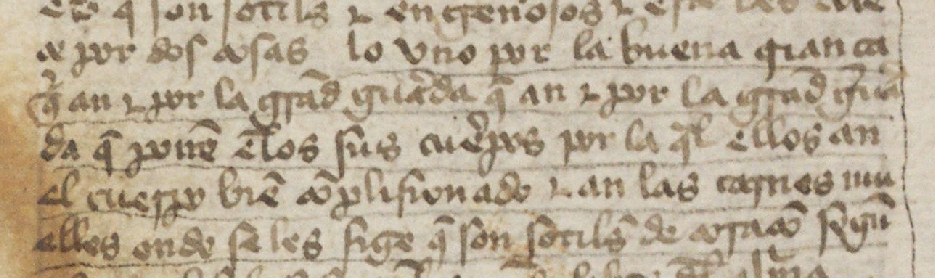 q̃ son sotils ⁊ engenosos ⁊
çe por dos cosas lo vno por la buena criança
q̃ an ⁊ por la grãd guarda q̃ an ⁊ por la grãd gua
da q̃ ponẽ ẽlos sus cuerpos por la q̃l ellos an
el cuerpo biẽ cõplisionado ⁊ an las carnes mu
elles onde se les sige q̃ son sotiles de coraçõ segũ